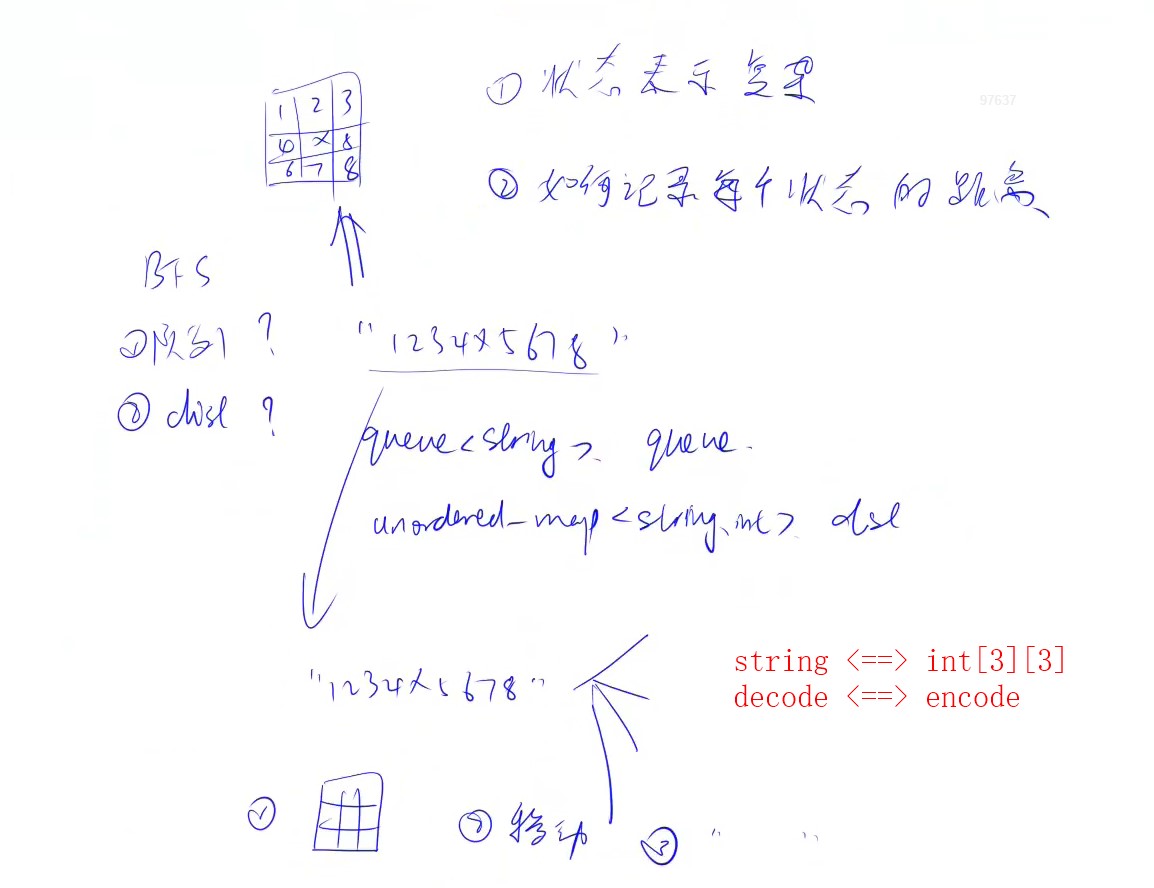 ① 状态表示复杂
1 2 3
97637
4 x 8
6 7 8
② 如何记录每个状态的距离
BFS
①队列 ?
"1234x5678"
② dist ?
queue<string> queue
unordered_map<string, int> dist
string <==> int[3][3]
"1234x5678"
decode <==> encode
①
② 移动
③ " "